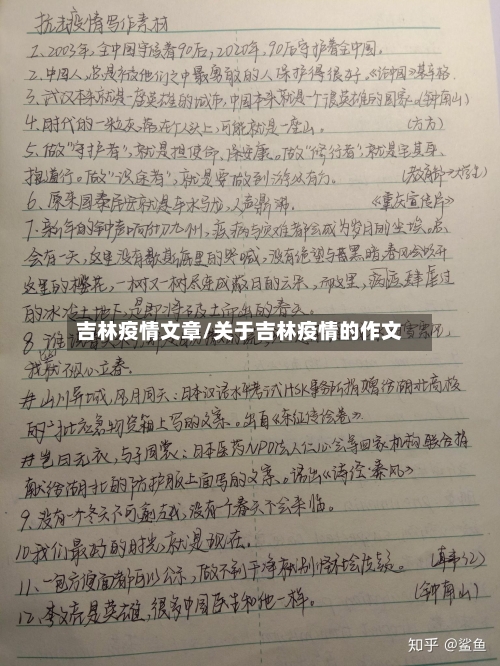 抗击疫情写作素材
1、2003年,全中国守护着90后,2020年,90后守护着全中国。
2、中国人,总是被他们之中最勇敢的人保护得很好。《论中国》基辛格
3、武汉本来就是一座英雄的城市,中国本来就是一个很英雄的国家。(钟南山)
4、时代的一粒灰,落在个人头上,可能就是一座山。 (方方)
5、做“守护者”,就是担使命、保安康。做“修行者”,就是
独道行。做“设
6、原来国泰民安就是车水马龙,人声鼎沸。 《重庆宣传片》
7、新年的钟声 九州,疫病与灾难都会成为岁月的尘埃。总
会有一天,这里没有歇斯底里的哭喊,没有绝望与黑暗,春风会吹开
这里的樱花,一树又一树尽连成蔽日的云朵,而这里,病医肆虐过
的冰冷土地下,是即将破土而出的春天。
吉林疫情文章/关于吉林疫情的作文
8、谁
我 立春。
#山川异域,风月同天:日本汉语水平考试HSK事务所捐赠给湖北高校
的 物资箱上写的文案。出自《东征传绘卷》
#岂曰无衣,与子同裳:日本医药NPO法人仁心会等四家机构联合捐
献给湖北的防护服上面写的文案。语出《诗经·秦风》
9、没有一个冬天不可逾越,没有一个春天不会来临。
10、我们最好的时光,就是现在。
11、一包方便面都可以公示,做不到干净就别怪社会质疑。
12、李文亮是英雄,很多中国医生和他一样。 (钟南山)
知乎 @鲨鱼